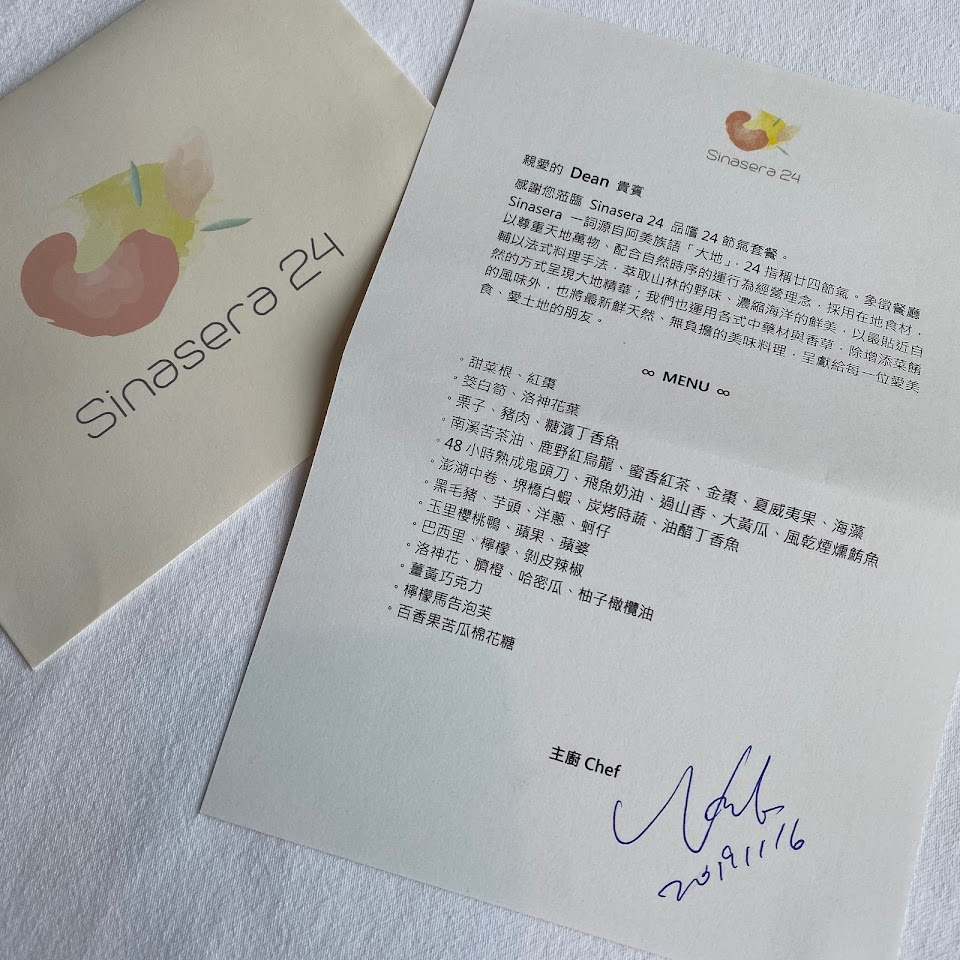 Sinasera 24
Sinasera 24
親愛的 Dean 貴賓
感謝您蒞臨 Sinasera 24 品嚐 24 節氣套餐。
Sinasera 一詞源自阿美族語「大地」, 24 指稱廿四節氣。象徵餐廳
以尊重天地萬物、配合自然時序的運行為經營理念，採用在地食材，
輔以法式料理手法，萃取山林的野味、濃縮海洋的鮮美，以最貼近自
然的方式呈現大地精華；我們也運用各式中藥材與香草，除增添菜餚
的風味外，也將最新鮮天然、無負擔的美味料理，呈獻給每一位愛美
食、愛土地的朋友。
∞ MENU ∞
。甜菜根、紅棗
。筊白筍、洛神花葉
。栗子、豬肉、糖漬丁香魚
。南溪苦茶油、鹿野紅烏龍、蜜香紅茶、金棗、夏威夷果、海藻
。48 小時熟成鬼頭刀、飛魚奶油、過山香、大黃瓜、風乾煙燻鮪魚
。澎湖中卷、堺橋白蝦、炭烤時蔬、油醋丁香魚
。黑毛豬、芋頭、洋蔥、蚵仔
。玉里櫻桃鴨、蘋果、蘋婆
。巴西里、檸檬、剝皮辣椒
。洛神花、臍橙、哈密瓜、柚子橄欖油
。薑黃巧克力
。檸檬馬告泡芙
。百香果苦瓜棉花糖
主廚 Chef
20191116